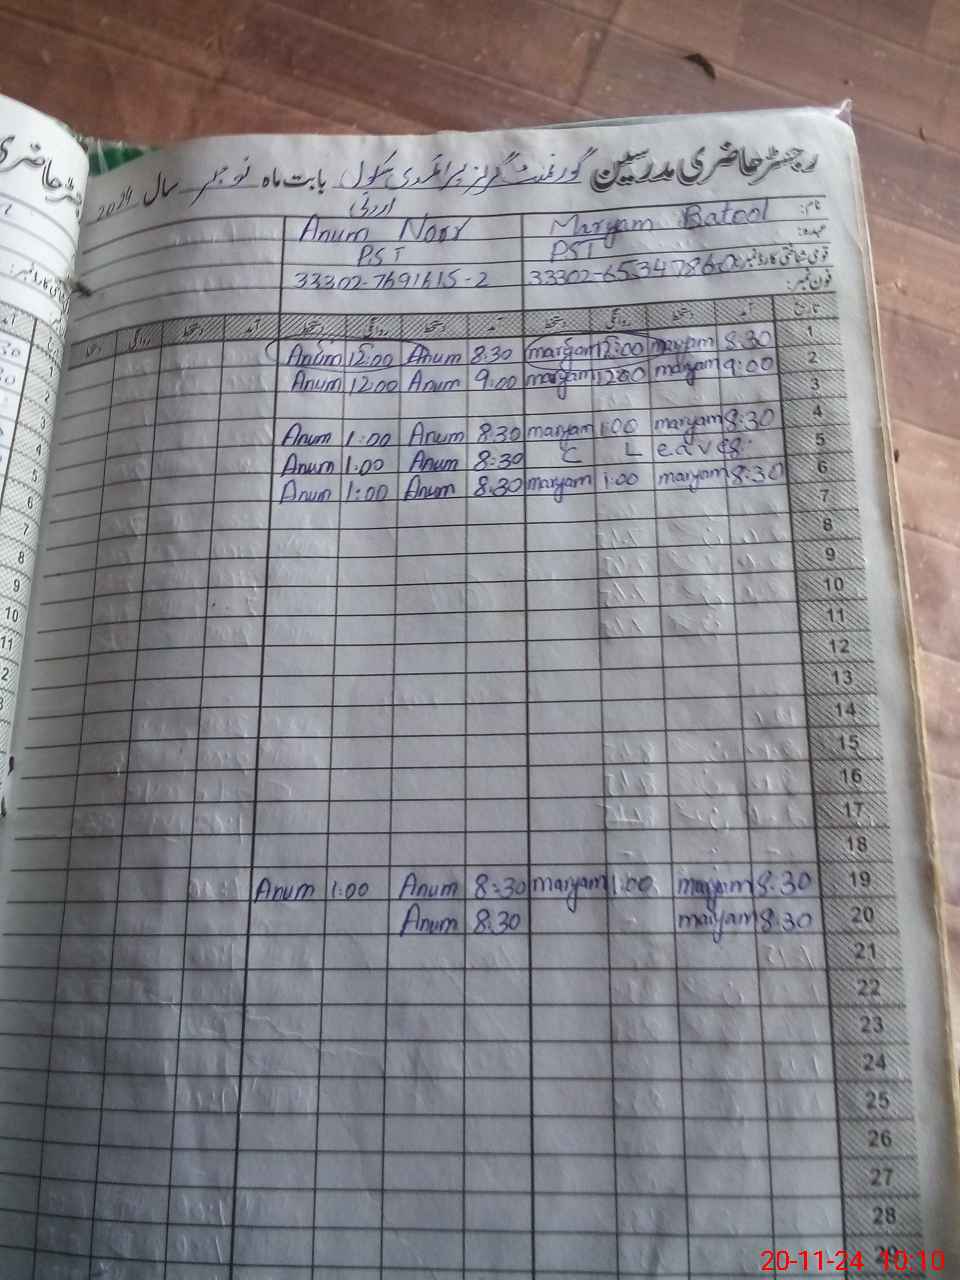 رجسٹر حاضری مدرسین گورنمنٹ گرلز پرائمری سکول بابت ماہ نومبر سال 2024
نام: Maryam Batool Anum Noor
عہدہ: PST PST
قومی شناختی کارڈ نمبر: 33302-6534786-0 33302-7691615-2
فون نمبر:
تاریخ آمد دستخط روانگی دستخط آمد دستخط روانگی دستخط آمد دستخط روانگی دستخط
1 8:30 maryam 12:00 maryam 8:30 Anum 12:00 Anum
2 9:00 maryam 12:00 maryam 9:00 Anum 12:00 Anum
3
4 8:30 maryam 1:00 maryam 8:30 Anum 1:00 Anum
5 C Leaves 8:30 Anum 1:00 Anum
6 8:30 maryam 1:00 maryam 8:30 Anum 1:00 Anum
7
8
9
10
11
12
13
14
15
16
17
18
19 8:30 maryam 1:00 maryam 8:30 Anum 1:00 Anum
20 8:30 maryam 8:30 Anum
21
22
23
24
25
26
27
28
20-11-24 10:10